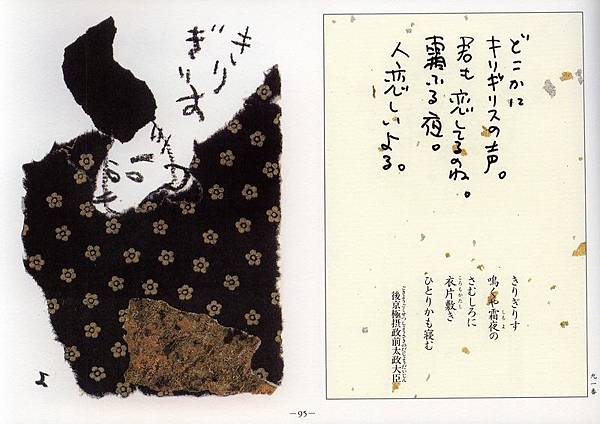 どこかに
キリギリスの声。
君も恋してるのね。
霜ふる夜。
人恋しいよる。
きりぎりす
鳴くや霜夜の
しもよ
さむしろに
衣片敷き
ころもかたし
ひとりかも寝む
後京極摂政前太政大臣
九一番
きり
ぎりす
—95—